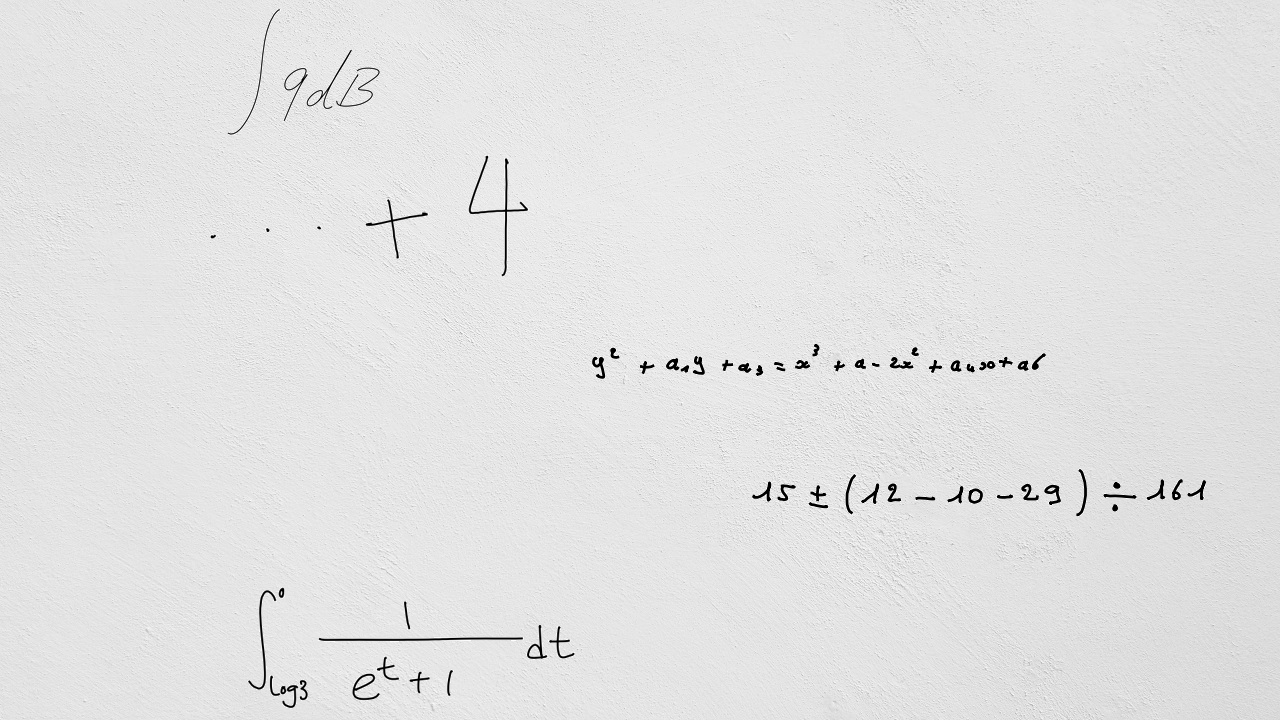 ∫ q dB
. . . + 4
y² + a₁y + a₃ = x³ + a - 2x² + a₄x + a6
15 ± (12 - 10 - 29) ÷ 161
∫_{log3}^{0} \frac{1}{e^t + 1} dt